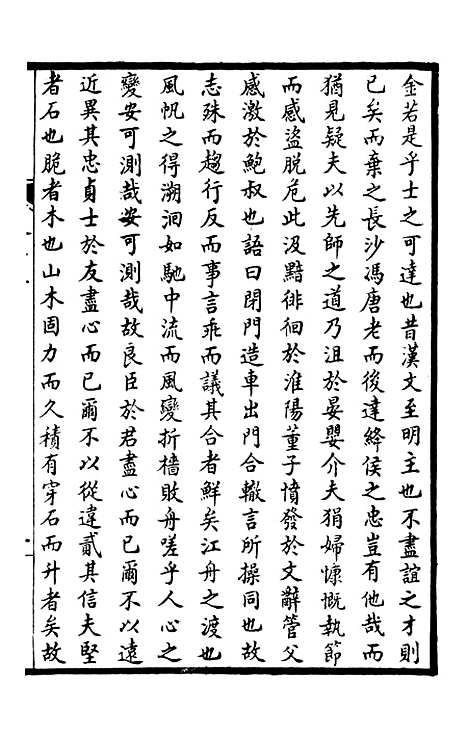 金若是乎士之可達也昔漢文至明主也不盡誼之才則
已矣而棄之長沙馮唐老而後達絳侯之忠豈有他哉而
猶見疑夫以先師之道乃沮於晏嬰介夫狷婦慷慨執節
而感盜脫危此汲黯徘徊於淮陽董子憤發於文辭管父
感激於鮑叔也語曰閉門造車出門合轍言所操同也故
志殊而趨行反而事言乖而議其合者鮮矣江舟之渡也
風帆之得溯洄如馳中流而風變折檣敗舟嗟乎人心之
變安可測哉安可測哉故良臣於君盡心而已爾不以遠
近異其忠貞士於友盡心而已爾不以從違貳其信夫堅
者石也脆者木也山木固力而久積有穿石而升者矣故